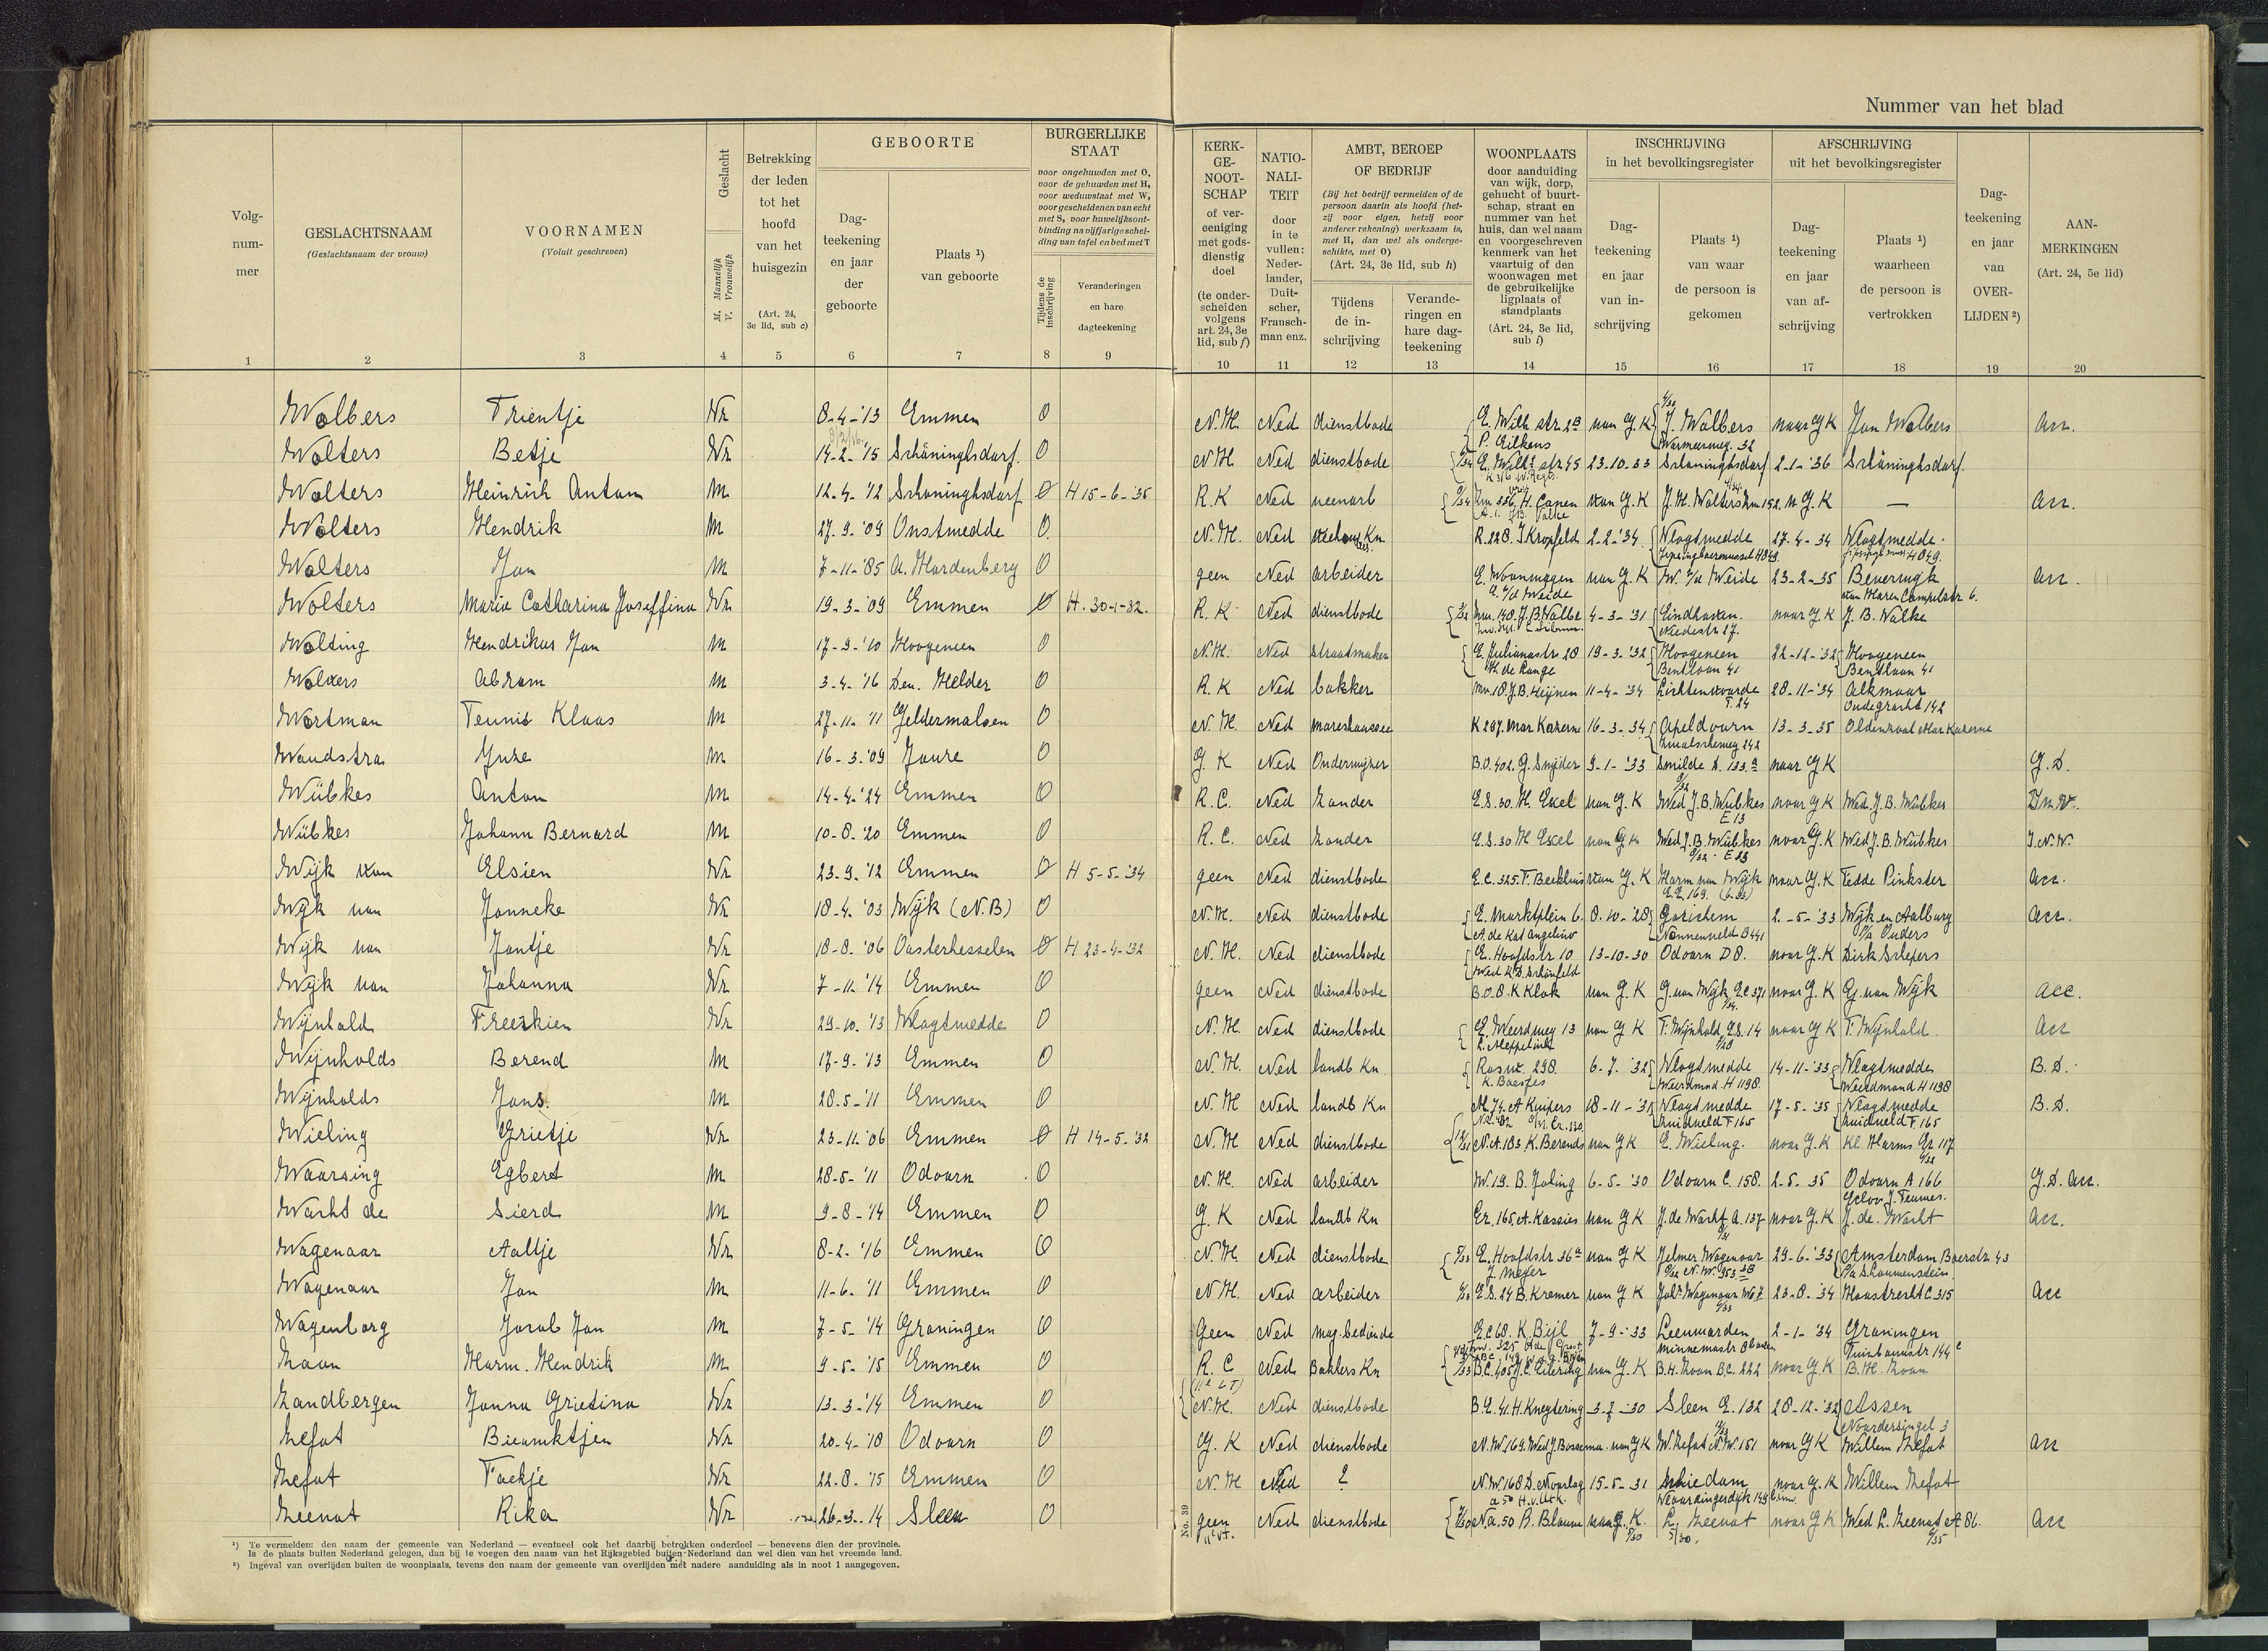 Nummer van het blad
Volg-
num-
mer
1
GESLACHTSNAAM
(Geslachtsnaam der vrouw)
2
VOORNAMEN
(Voluit geschreven)
3
Geslacht
M. Mannelijk
V. Vrouwelijk
4
Betrekking
der leden
tot het
hoofd
van het
huisgezin
(Art. 24,
3e lid, sub c)
5
GEBOORTE
Dag-
teekening
en jaar
der
geboorte
6
Plaats ¹)
van geboorte
7
BURGERLIJKE
STAAT
voor ongehuwden met O,
voor de gehuwden met H,
voor weduwstaat met W,
voor gescheidenen van echt
met S, voor huwelijksont-
binding na vijfjarige schei-
ding van tafel en bed met T
Tijdens de
inschrijving
8
Veranderingen
en hare
dagteekening
9
KERK-
GE-
NOOT-
SCHAP
of ver-
eeniging
met gods-
dienstig
doel
(te onder-
scheiden
volgens
art. 24, 3e
lid, sub f)
10
NATIO-
NALI-
TEIT
door
in te
vullen:
Neder-
lander,
Duit-
scher,
Fransch-
man enz.
11
AMBT, BEROEP
OF BEDRIJF
(Bij het bedrijf vermelden of de
persoon daarin als hoofd (het-
zij voor eigen, hetzij voor
anderer rekening) werkzaam is,
met H, dan wel als onderge-
schikte, met O)
(Art. 24, 3e lid, sub h)
Tijdens
de in-
schrijving
12
Verande-
ringen en
hare dag-
teekening
13
WOONPLAATS
door aanduiding
van wijk, dorp,
gehucht of buurt-
schap, straat en
nummer van het
huis, dan wel naam
en voorgeschreven
kenmerk van het
vaartuig of den
woonwagen met
de gebruikelijke
ligplaats of
standplaats
(Art. 24, 3e lid,
sub i)
14
INSCHRIJVING
in het bevolkingsregister
Dag-
teekening
en jaar
van in-
schrijving
15
Plaats ¹)
van waar
de persoon is
gekomen
16
AFSCHRIJVING
uit het bevolkingsregister
Dag-
teekening
en jaar
van af-
schrijving
17
Plaats ¹)
waarheen
de persoon is
vertrokken
18
Dag-
teekening
en jaar
van
OVER-
LIJDEN ²)
19
AAN-
MERKINGEN
(Art. 24, 5e lid)
20
Wolbers Trientje Vr 8-4-'13 Emmen O N.H. Ned dienstbode E. Wilh str 28 van G.K J. Wolbers naar GK Jan Wolbers
P. Eilkens Warmerweg 32
Wolters Betje Vr 14-2-'15 Schöninghsdorf O N.H Ned dienstbode 23-10-33 Schöninghsdorf 2-1-'36 Schöninghsdorf
Wolters Heinrich Antom M 12-4-'12 Schöninghsdorf O H 15-6-'35 R.K Ned veenarb van G.K
Wolters Hendrik M 27-9-'09 Onstwedde O N.H. Ned Kn R.228. J Kropfeld 2-2-'34 Vlagtwedde 27-4-34 Vlagtwedde
Wolters Jan M 7-11-'85 A. Hardenberg O geen Ned arbeider E. Woonwagen van G.K W. v/d Weide 23-2-35 Beverwijk
Wolters Maria Catharina Joseffina Vr 19-3-'09 Emmen O H. 30-1-32. R.K Ned dienstbode 4-3-'31 Eindhoven. naar G.K J.B. Walke
Wolting Hendrikus Jan M 17-9-'10 Hoogeveen O N.H. Ned straatmaker E. Julianastr 28 19-3-'32 Hoogeveen 22-12-'32 Hoogeveen
H. de Lange Bentlaan 41 Bentlaan 41
Wolxers Abram M 3-4-'16 Den Helder O R.K Ned bakker 11-4-'34 Lichtenvoorde 28-11-'34 Alkmaar
T. 24 Oudegracht 142
Wortman Teunis Klaas M 27-11-'11 Geldermalsen O N.H. Ned mareshaussee K 297. Mar Kazerne 16-3-34 Apeldoorn 13-3-35 Oldenzaal Mar Kazerne
Woudstra Ynze M 16-3-'09 Joure O G.K Ned Onderwijzer B.O. 402. G. Snyder 9-1-'33 Smilde D. 133 a naar GK G.D.
Wübkes Anton M 14-4-'24 Emmen O R.C. Ned zonder E.S. 30. H. Exel van G.K Wed J.B. Wübkes naar GK Wed. J.B. Wübkes
E 13
Wübkes Johann Bernard M 10-8-'20 Emmen O R.C. Ned zonder E.S. 30 H Exel van GK Wed J.B. Wübkes naar G.K Wed J.B. Wübkes
Wijk van Elsien Vr 23-9-'12 Emmen O H 5-5-'34 geen Ned dienstbode E.C. 325. T. Beekhuis van G.K Harm van Wijk naar G.K Tedde Pinkster
Wijk van Janneke Vr 18-4-'03 Wijk (N.B) O N.H. Ned dienstbode E. Marktplein 6. 8-10-'28 Gorichem 2-5-'33 Wijk en Aalburg
A. de Kat Angelino p/a Ouders
Wijk van Jantje Vr 18-8-'06 Oosterhesselen O H 23-4-'32 N.H. Ned dienstbode E. Hoofdstr 10 13-10-30 Odoorn D8. naar G.K Dirk Schepers
Wed K.D. Schönfeld
Wijk van Johanna Vr 7-11-'14 Emmen O geen Ned dienstbode B.O.8. K Klok van G.K G. van Wijk E.C 371 naar G.K G. van Wijk
Wijnhold Freerkien Vr 29-10-'13 Vlagtwedde O N.H. Ned dienstbode E. Weerdweg 13 van GK T. Wijnhold E.S. 14 naar GK T. Wijnhold
Wijnholds Berend M 17-9-'13 Emmen O N.H. Ned landb Kn 6-7-'32 Vlagtwedde 14-11-'33 Vlagtwedde B.D.
Weerdmond H 1198. Weerdmond H 1198
Wijnholds Jans. M 28-5-'11 Emmen O N.H Ned landb Kn M. 74. A Kuipers 18-11-'31 Vlagtwedde 17-5-'35 Vlagtwedde B.D.
Zuidveld F 165 Zuidveld F. 165
Wieling Grietje Vr 23-11-'06 Emmen O H 14-5-'32 N.H Ned dienstbode N.A. 183. K. Berends van GK E. Wieling. naar G.K Kl. Harms
Waarsing Egbert M 28-5-'11 Odoorn O N.H. Ned arbeider W. 19. B. Joling 6-5-'30 Odoorn C. 158. 2-5-35 Odoorn A 166 G.D.
Wacht de Sierd M 9-8-'14 Emmen O G.K Ned landb Kn Er. 165. A. Kassies van GK J. de Wacht A. 137 naar G.K J. de Wacht
Wagenaar Aaltje Vr 8-2-'16 Emmen O N.H. Ned dienstbode E. Hoofdstr 36a van GK Jelmer Wagenaar 29-6-'33 Amsterdam
J. Meyer
Wagenaar Jan M 11-6-'11 Emmen O N.H. Ned arbeider E.S. 24 B. Kremer van GK 23-8-'34 Haastrecht C 315
Wagenborg Jacob Jan M 7-5-'14 Groningen O Geen Ned mag. bediende E.C 68. K. Bijl 7-9-'33 Leeuwarden 2-1-'34 Groningen
Zaan Harm. Hendrik M 9-5-'15 Emmen O R.C Ned Bakkers Kn van G.K B.H. Zoon B.C. 222 naar GK B.H. Zoon
Zandbergen Janna Grietina Vr 13-3-'14 Emmen O N.H. Ned dienstbode B.E. 41. H. Knegtering 3-7-30 Sleen E. 132 28-12-'32 Assen
Noordersingel 3
Zefat Bieuwktjen Vr 20-4-'18 Odoorn O G.K Ned dienstbode van GK W. Zefat N.W. 151 naar GK Willem Zefat
Zefat Foekje Vr 22-8-'15 Emmen O N.H Ned ? 15-5-31 Schiedam naar G.K Willem Zefat
Zeenat Rika Vr 26-3-14 Sleen O geen Ned dienstbode van G.K. L. Zeenat naar GK Wed L. Zeenat
No. 39
¹) Te vermelden: den naam der gemeente van Nederland — eventueel ook het daarbij betrokken onderdeel — benevens dien der provincie.
Is de plaats buiten Nederland gelegen, dan bij te voegen den naam van het Rijksgebied buiten Nederland dan wel dien van het vreemde land.
²) Ingeval van overlijden buiten de woonplaats, tevens den naam der gemeente van overlijden mét nadere aanduiding als in noot 1 aangegeven.